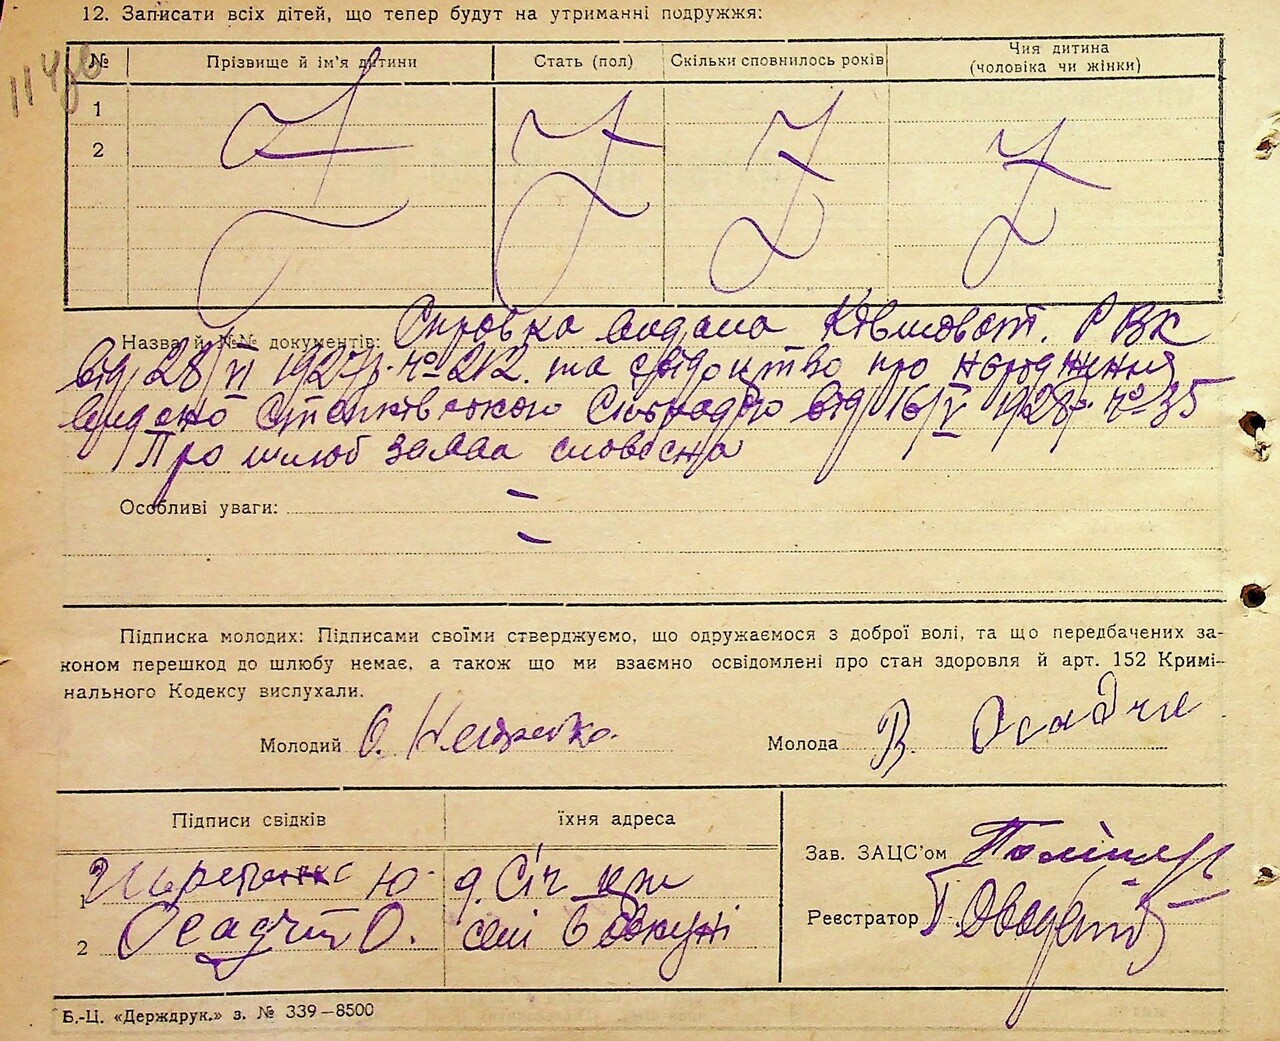 12. Записати всіх дітей, що тепер будут на утриманні подружжя:
№ Прізвище й ім'я дитини Стать (пол) Скільки сповнилось років Чия дитина (чоловіка чи жінки)
1
2
Назва й №№ документів: Справка видана РВК
від 28/VI 1927р. № 212. та свідоцтво про народження
видано Сільрадою від 16/V 1928р. № 35
Про шлюб заява словесна
Особливі уваги:
Підписка молодих: Підписами своїми стверджуємо, що одружаємося з доброї волі, та що передбачених за-
коном перешкод до шлюбу немає, а також що ми взаємно освідомлені про стан здоровля й арт. 152 Кримі-
нального Кодексу вислухали.
Молодий О. Молода В. Осадча
Підписи свідків їхня адреса
Зав. ЗАЦС'ом
1 Ю.
Реєстратор
2 Осадчий О.
Б.-Ц. «Держдрук.» з. № 339—8500